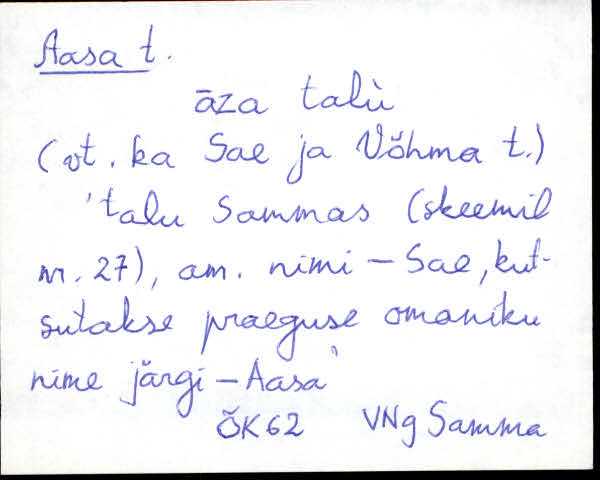 Aasa t.
āza talù
(vt. ka Sae ja Võhma t.)
'talu Sammas (skeemil
nr. 27), am. nimi – Sae, kut-
sutakse praeguse omaniku
nime järgi – Aasa'
ÕK 62 VNg Samma